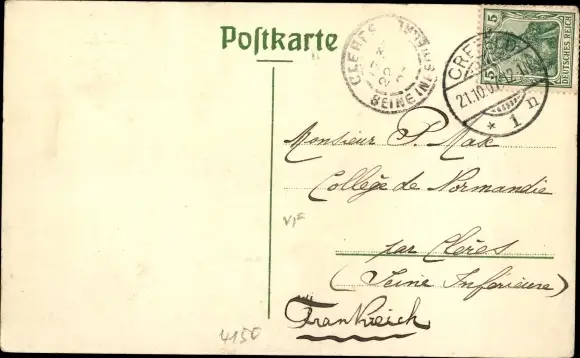 Postkarte
5
5
DEUTSCHES REICH
CREFELD
21.10.07
* 1 n
SEINE INF
Monsieur P. Mak
Collège de Normandie
par Clères
(Seine Inférieure)
Frankreich
4150